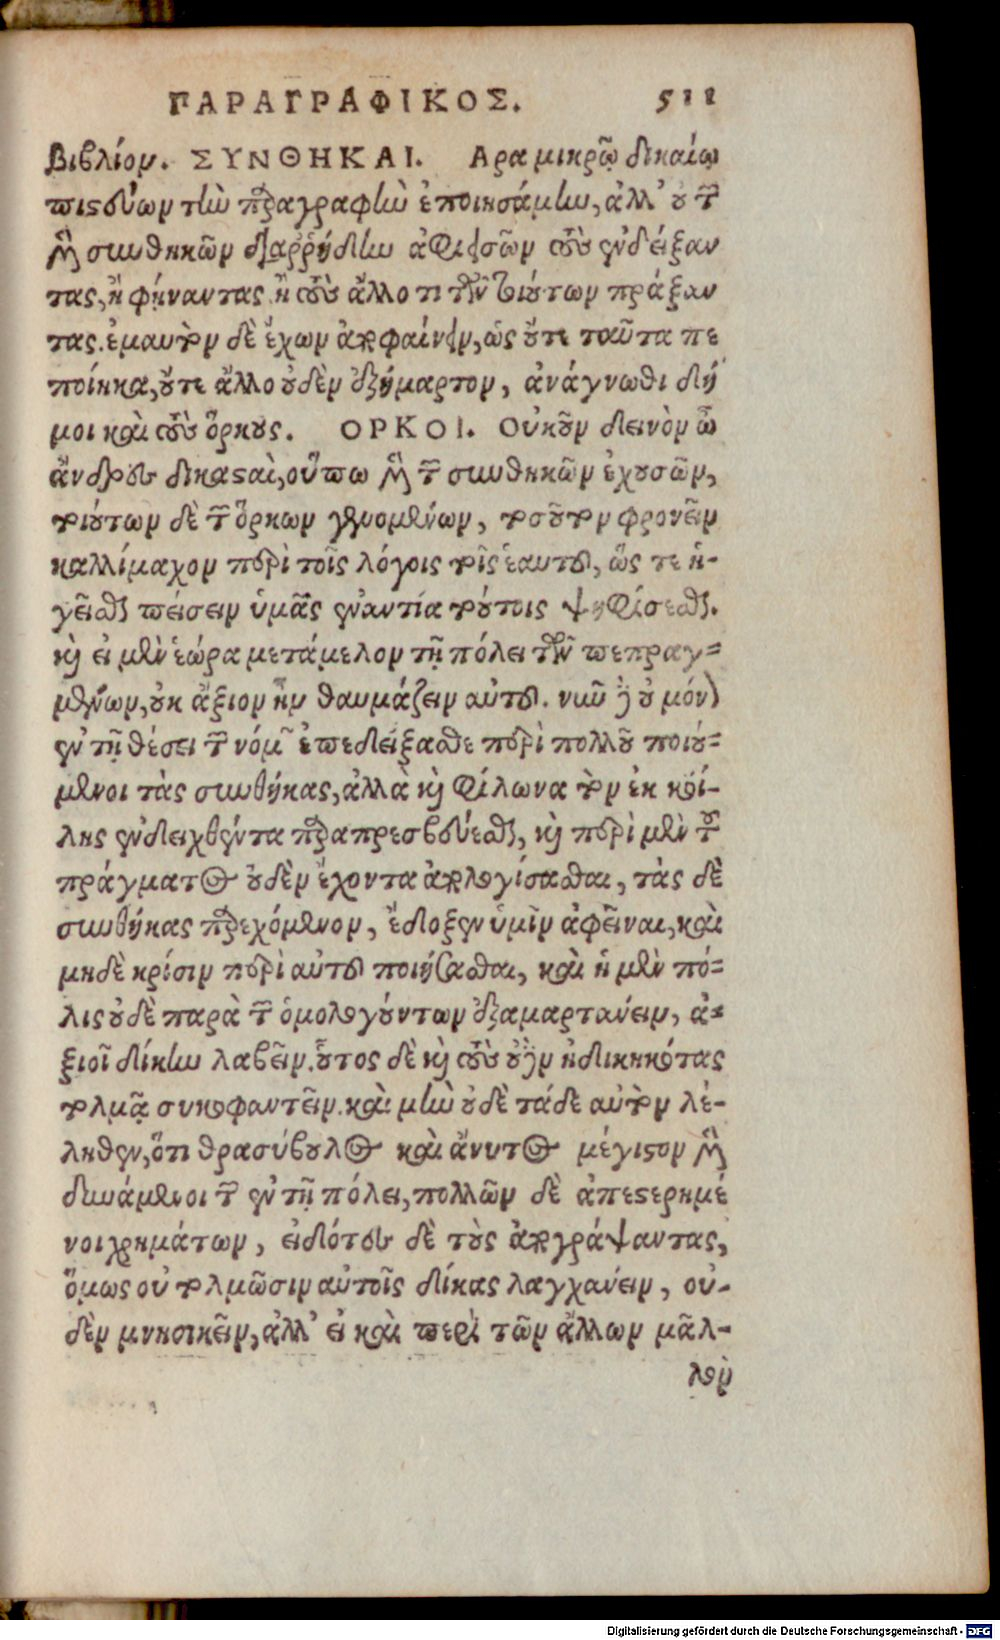 ΠΑΡΑΓΡΑΦΙΚΟΣ. 511
βιβλίον. ΣΥΝΘΗΚΑΙ. Αρα μικρῷ δικαίῳ
πιστεύων τὴν παραγραφὴν ἐποιησάμην, ἀλλ' οὐ τῶν
μὲν συνθηκῶν διαρρήδην ἀφιεισῶν τοὺς ἐνδείξαν
τας, ἢ φήναντας ἢ τοὺς ἄλλο τι τῶν τοιούτων πράξαν
τας. ἐμαυτὸν δὲ ἔχων ἀποφαίνειν, ὡς οὔτε ταῦτα πε
ποίηκα, οὔτε ἄλλο οὐδὲν ἐξήμαρτον, ἀνάγνωθι δή
μοι καὶ τοὺς ὅρκους. ΟΡΚΟΙ. Οὐκοῦν δεινὸν ὦ
ἄνδρες δικασταὶ, οὕτω μὲν τῶν συνθηκῶν ἐχουσῶν,
τοιούτων δὲ τῶν ὅρκων γενομένων, τοσοῦτον φρονεῖν
καλλίμαχον περὶ τοῖς λόγοις τοῖς ἑαυτοῦ, ὥς τε ἡ-
γεῖσθαι πείσειν ὑμᾶς ἐναντία τούτοις ψηφίσεσθαι.
καὶ εἰ μὲν ἑώρα μετάμελον τῇ πόλει τῶν πεπραγ-
μένων, οὐκ ἄξιον ἦν θαυμάζειν αὐτοῦ. νῦν δὲ οὐ μόνον
ἐν τῇ θέσει τῶν νόμων ἐπεδείξασθε περὶ πολλοῦ ποιού-
μενοι τὰς συνθήκας, ἀλλὰ καὶ Φίλωνα τὸν ἐκ κοί-
λης ἐνδειχθέντα παραπρεσβεύεσθαι, καὶ περὶ μὲν τοῦ
πράγματος οὐδὲν ἔχοντα ἀπολογίσασθαι, τὰς δὲ
συνθήκας παρεχόμενον, ἔδοξεν ὑμῖν ἀφεῖναι, καὶ
μηδὲ κρίσιν περὶ αὐτοῦ ποιήσασθαι, καὶ ἡ μὲν πό-
λις οὐδὲ παρὰ τῶν ὁμολογούντων ἐξαμαρτάνειν, ἀ-
ξιοῖ δίκην λαβεῖν. οὗτος δὲ καὶ τοὺς οὐδὲν ἠδικηκότας
τολμᾷ συκοφαντεῖν. καὶ μὴν οὐδὲ τάδε αὐτὸν λέ-
ληθεν, ὅτι θρασύβουλος καὶ ἄνυτος μέγιστον μὲν
δυνάμενοι τῶν ἐν τῇ πόλει, πολλῶν δὲ ἀπεστερημέ
νοι χρημάτων, εἰδότες δὲ τοὺς ἀπογράψαντας,
ὅμως οὐ τολμῶσιν αὐτοῖς δίκας λαγχάνειν, οὐ-
δὲν μνησικεῖν, ἀλλ' εἰ καὶ περὶ τῶν ἄλλων μᾶλ-
λον
Digitalisierung gefördert durch die Deutsche Forschungsgemeinschaft - DFG